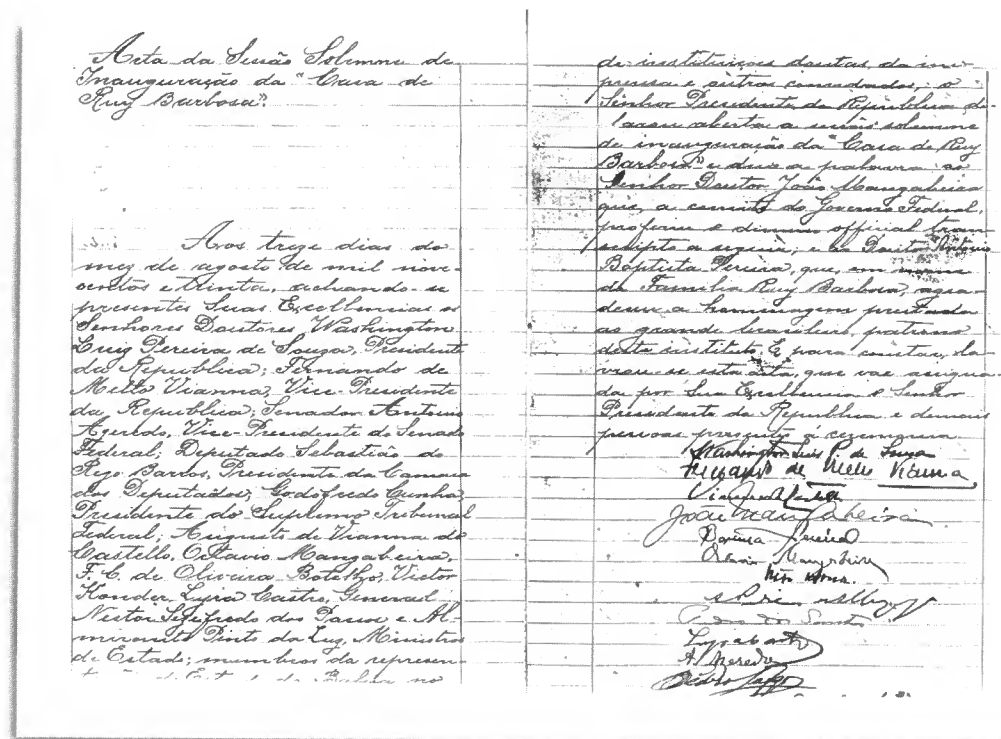 Acta da Sessão Solemne de
Inauguração da "Casa de
Ruy Barbosa".
Aos treze dias do
mez de agosto de mil nove-
centos e trinta, achando-se
presentes Suas Excellencias os
Senhores Doutores Washington
Luis Pereira de Souza, Presidente
da Republica; Fernando de
Mello Vianna, Vice-Presidente
da Republica; Senador Antonio
Azeredo, Vice-Presidente do Senado
Federal; Deputado Sebastião do
Rego Barros, Presidente da Camara
dos Deputados; Godofredo Cunha,
Presidente do Supremo Tribunal
Federal; Augusto de Vianna do
Castello, Octavio Mangabeira,
F. C. de Oliveira Botelho, Victor
Konder, Lyra Castro, General
Nestor Sezefredo dos Passos e Al-
mirante Pinto da Luz, Ministros
de Estado; membros da represen-
tação do Estado da Bahia no
de instituições doutas, da im-
prensa e outros convidados, o
Senhor Presidente da Republica de-
clarou aberta a sessão solemne
de inauguração da "Casa de Ruy
Barbosa" e deu a palavra ao
Senhor Doutor João Mangabeira
que, a convite do Governo Federal,
proferiu o discurso official tran-
scripto a seguir, e ao Doutor Antonio
Baptista Pereira, que, em nome
da Familia Ruy Barbosa, agra-
deceu a homenagem prestada
ao grande brasileiro, patrono
deste instituto. E para constar, la-
vrou-se esta acta, que vae assigna-
da por Sua Excellencia o Senhor
Presidente da Republica e demais
pessoas presentes á cerimonia.
Washington Luis P. de Souza
Fernando de Mello Vianna
João Mangabeira
Pereira
Octavio Mangabeira
Lyra Castro
A. Azeredo
Pedro Lago